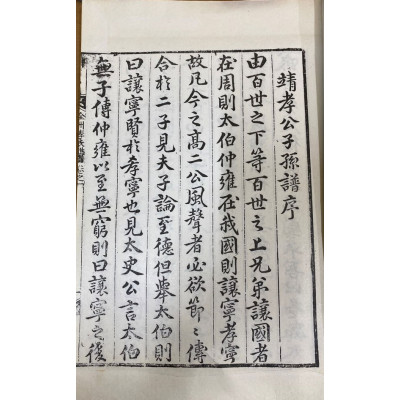 靖孝公子孫譜序
由百世之下等百世之上兄弟讓國者
在周則太伯仲雍在我國則讓寧孝寧
故凡今之高二公風聲者必欲節〻傳
合於二子見夫子論至德但舉太伯則
曰讓寧賢於孝寧也見太史公言太伯
無子傳仲雍以至無窮則曰讓寧之後